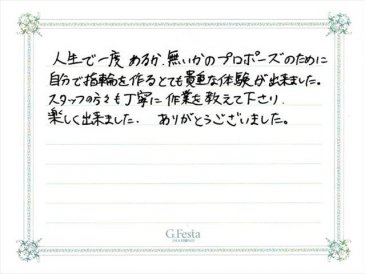 人生で一度あるか、無いかのプロポーズのために
自分で指輪を作るとても貴重な体験が出来ました。
スタッフの方々も丁寧に作業を教えて下さり、
楽しく出来ました。 ありがとうございました。
G.Festa